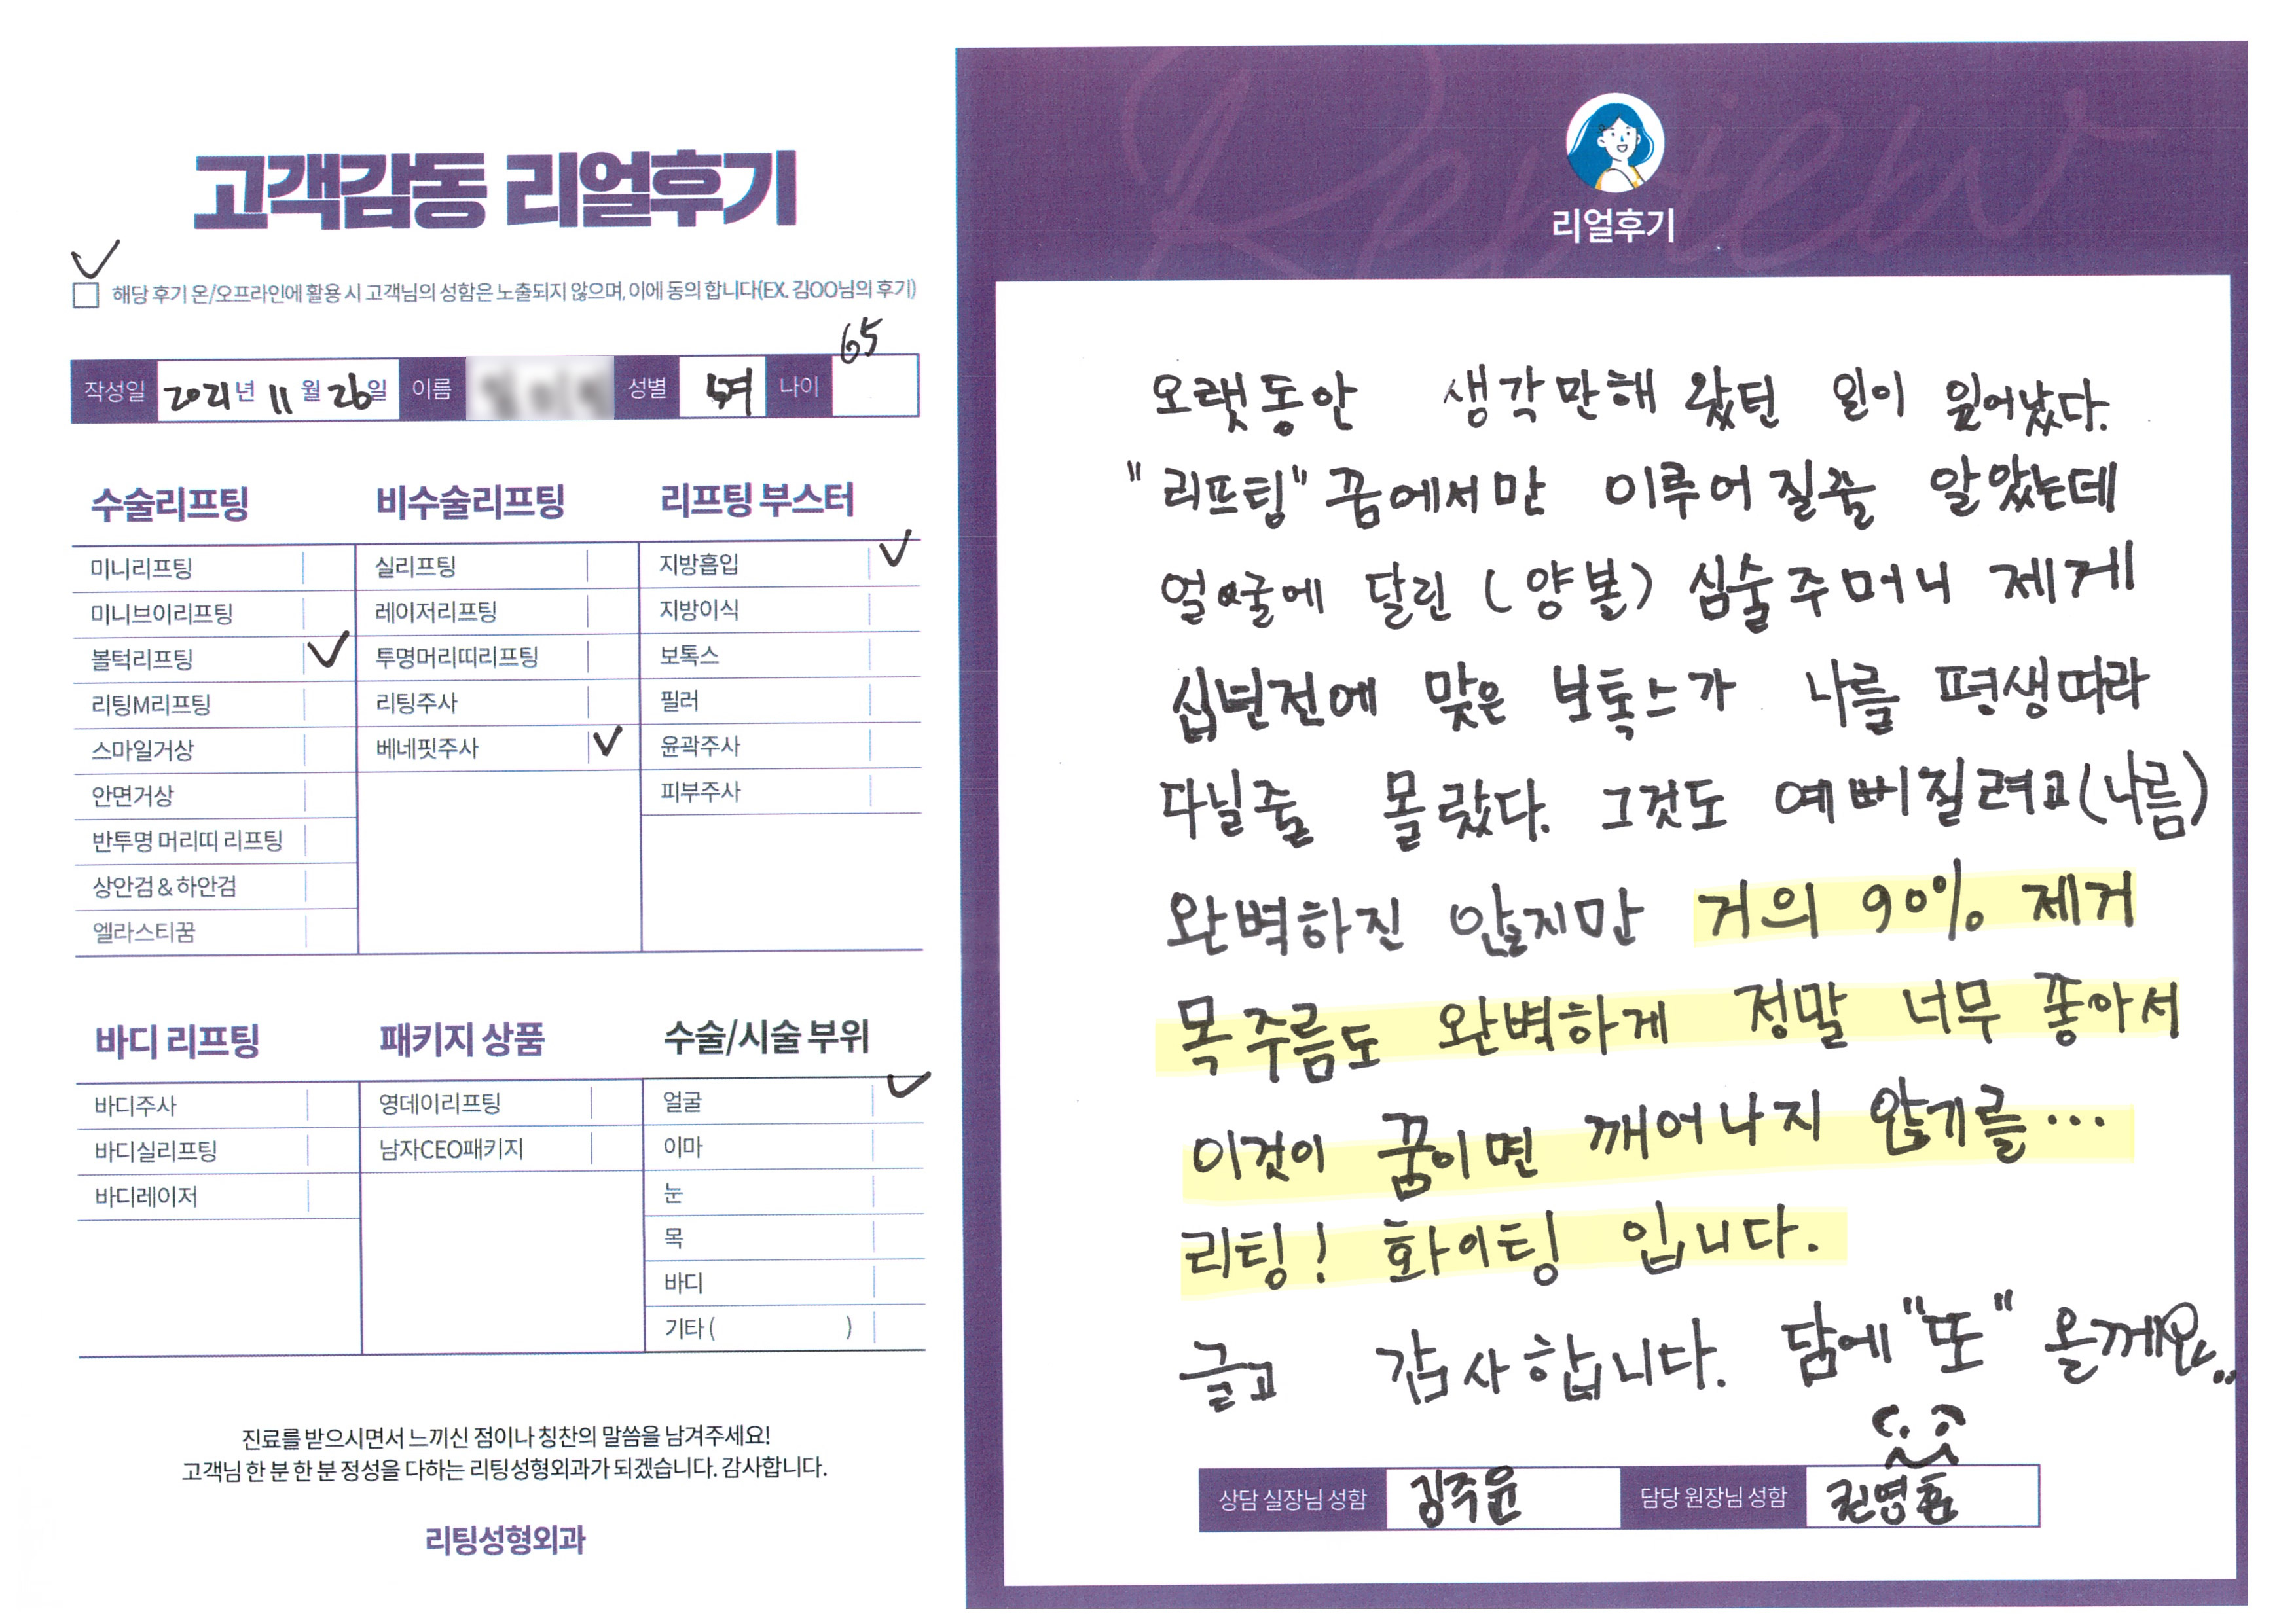 고객감동 리얼후기
해당 후기 온/오프라인에 활용 시 고객님의 성함은 노출되지 않으며, 이에 동의 합니다(EX. 김OO님의 후기)
65
작성일 2021년 11월 26일 이름 성별 여 나이
수술리프팅
미니리프팅
미니브이리프팅
볼턱리프팅
리팅M리프팅
스마일거상
안면거상
반투명 머리띠 리프팅
상안검 & 하안검
엘라스티꿈
비수술리프팅
실리프팅
레이저리프팅
투명머리띠리프팅
리팅주사
베네핏주사
리프팅 부스터
지방흡입
지방이식
보톡스
필러
윤곽주사
피부주사
바디 리프팅
바디주사
바디실리프팅
바디레이저
패키지 상품
영데이리프팅
남자CEO패키지
수술/시술 부위
얼굴
이마
눈
목
바디
기타 ( )
진료를 받으시면서 느끼신 점이나 칭찬의 말씀을 남겨주세요!
고객님 한 분 한 분 정성을 다하는 리팅성형외과가 되겠습니다. 감사합니다.
리팅성형외과
Review
리얼후기
오랫동안 생각만해 왔던 일이 일어났다.
"리프팅" 꿈에서만 이루어질줄 알았는데
얼굴에 달린 (양볼) 심술주머니 제게
십년전에 맞은 보톡스가 나를 평생따라
다닐줄 몰랐다. 그것도 예뻐질려고(나름)
완벽하진 않지만 거의 90% 제거
목주름도 완벽하게 정말 너무 좋아서
이것이 꿈이면 깨어나지 않기를...
리팅! 화이팅 입니다.
글고 감사합니다. 담에 "또" 올께요..
상담 실장님 성함 김주윤 담당 원장님 성함